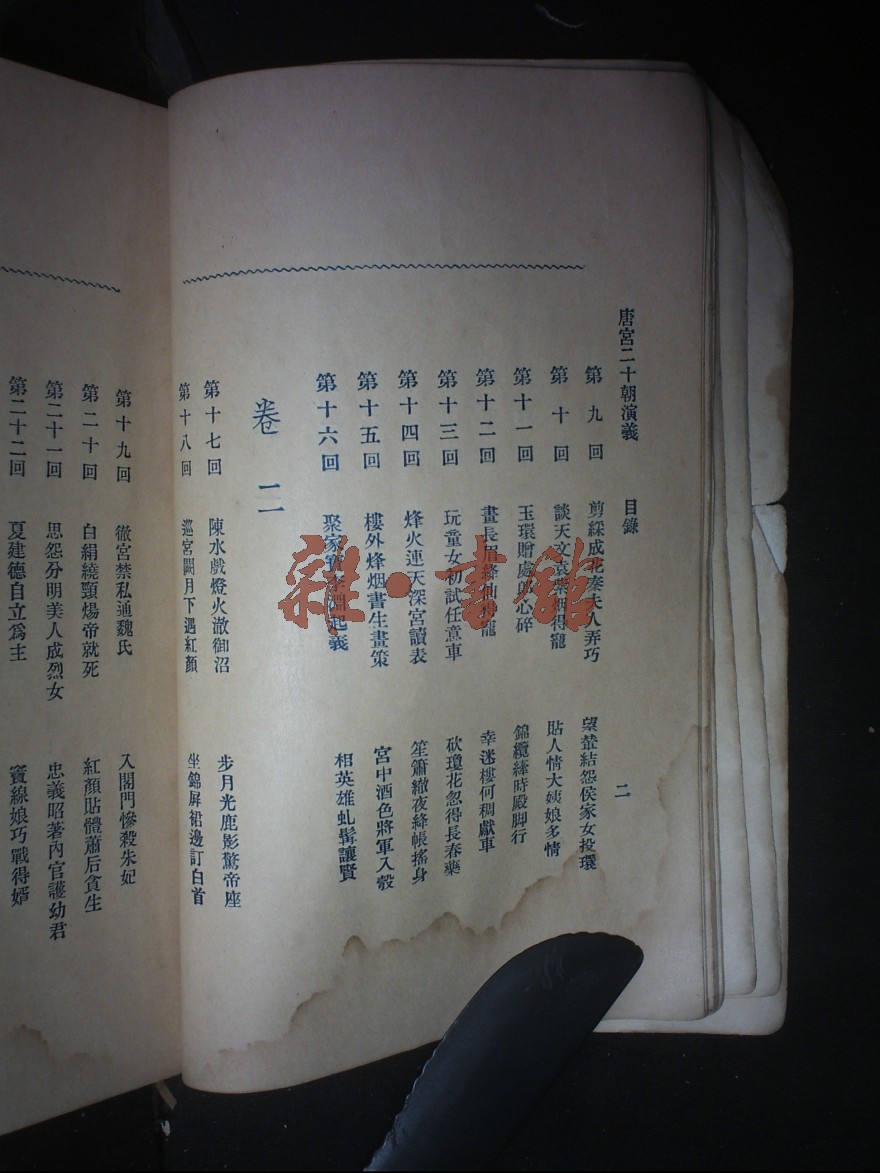 唐宮二十朝演義 目錄 二
第九回 剪綵成花秦夫人弄巧 望輦結怨侯家女投環
第十回 談天文袁紫烟得寵 貼人情大姨娘多情
第十一回 玉環贈處郎心碎 錦纜牽時殿脚行
第十二回 畫長眉絳仙得寵 幸迷樓何稠獻車
第十三回 玩童女初試任意車 砍瓊花忽得長春藥
第十四回 烽火連天深宮讀表 笙簫徹夜絳帳搖身
第十五回 樓外烽烟書生畫策 宮中酒色將軍入彀
第十六回 聚家寶李淵起義 相英雄虬髯讓賢
卷二
第十七回 陳水戲燈火澈御沼 步月光鹿影驚帝座
第十八回 巡宮闕月下遇紅顏 坐錦屏裙邊訂白首
第十九回 徹宮禁私通魏氏 入閣門慘殺朱妃
第二十回 白絹繞頸煬帝就死 紅顏貼體蕭后貪生
第二十一回 思怨分明美人成烈女 忠義昭著內官護幼君
第二十二回 夏建德自立爲主 竇線娘巧戰得婿
雜·書館